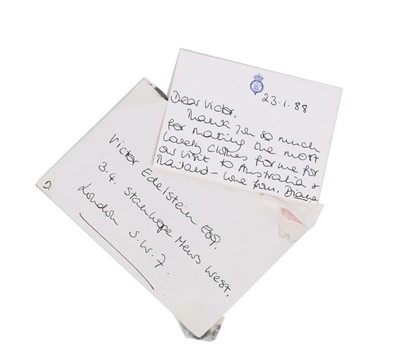 23.1.88
Dear Victor,
Thank you so much
for making the most
lovely clothes for me for
our visit to Australia &
Thailand - love from, Diana
2
Victor Edelstein Esq.
3-4. Stanhope Mews West,
London
S.W.7.